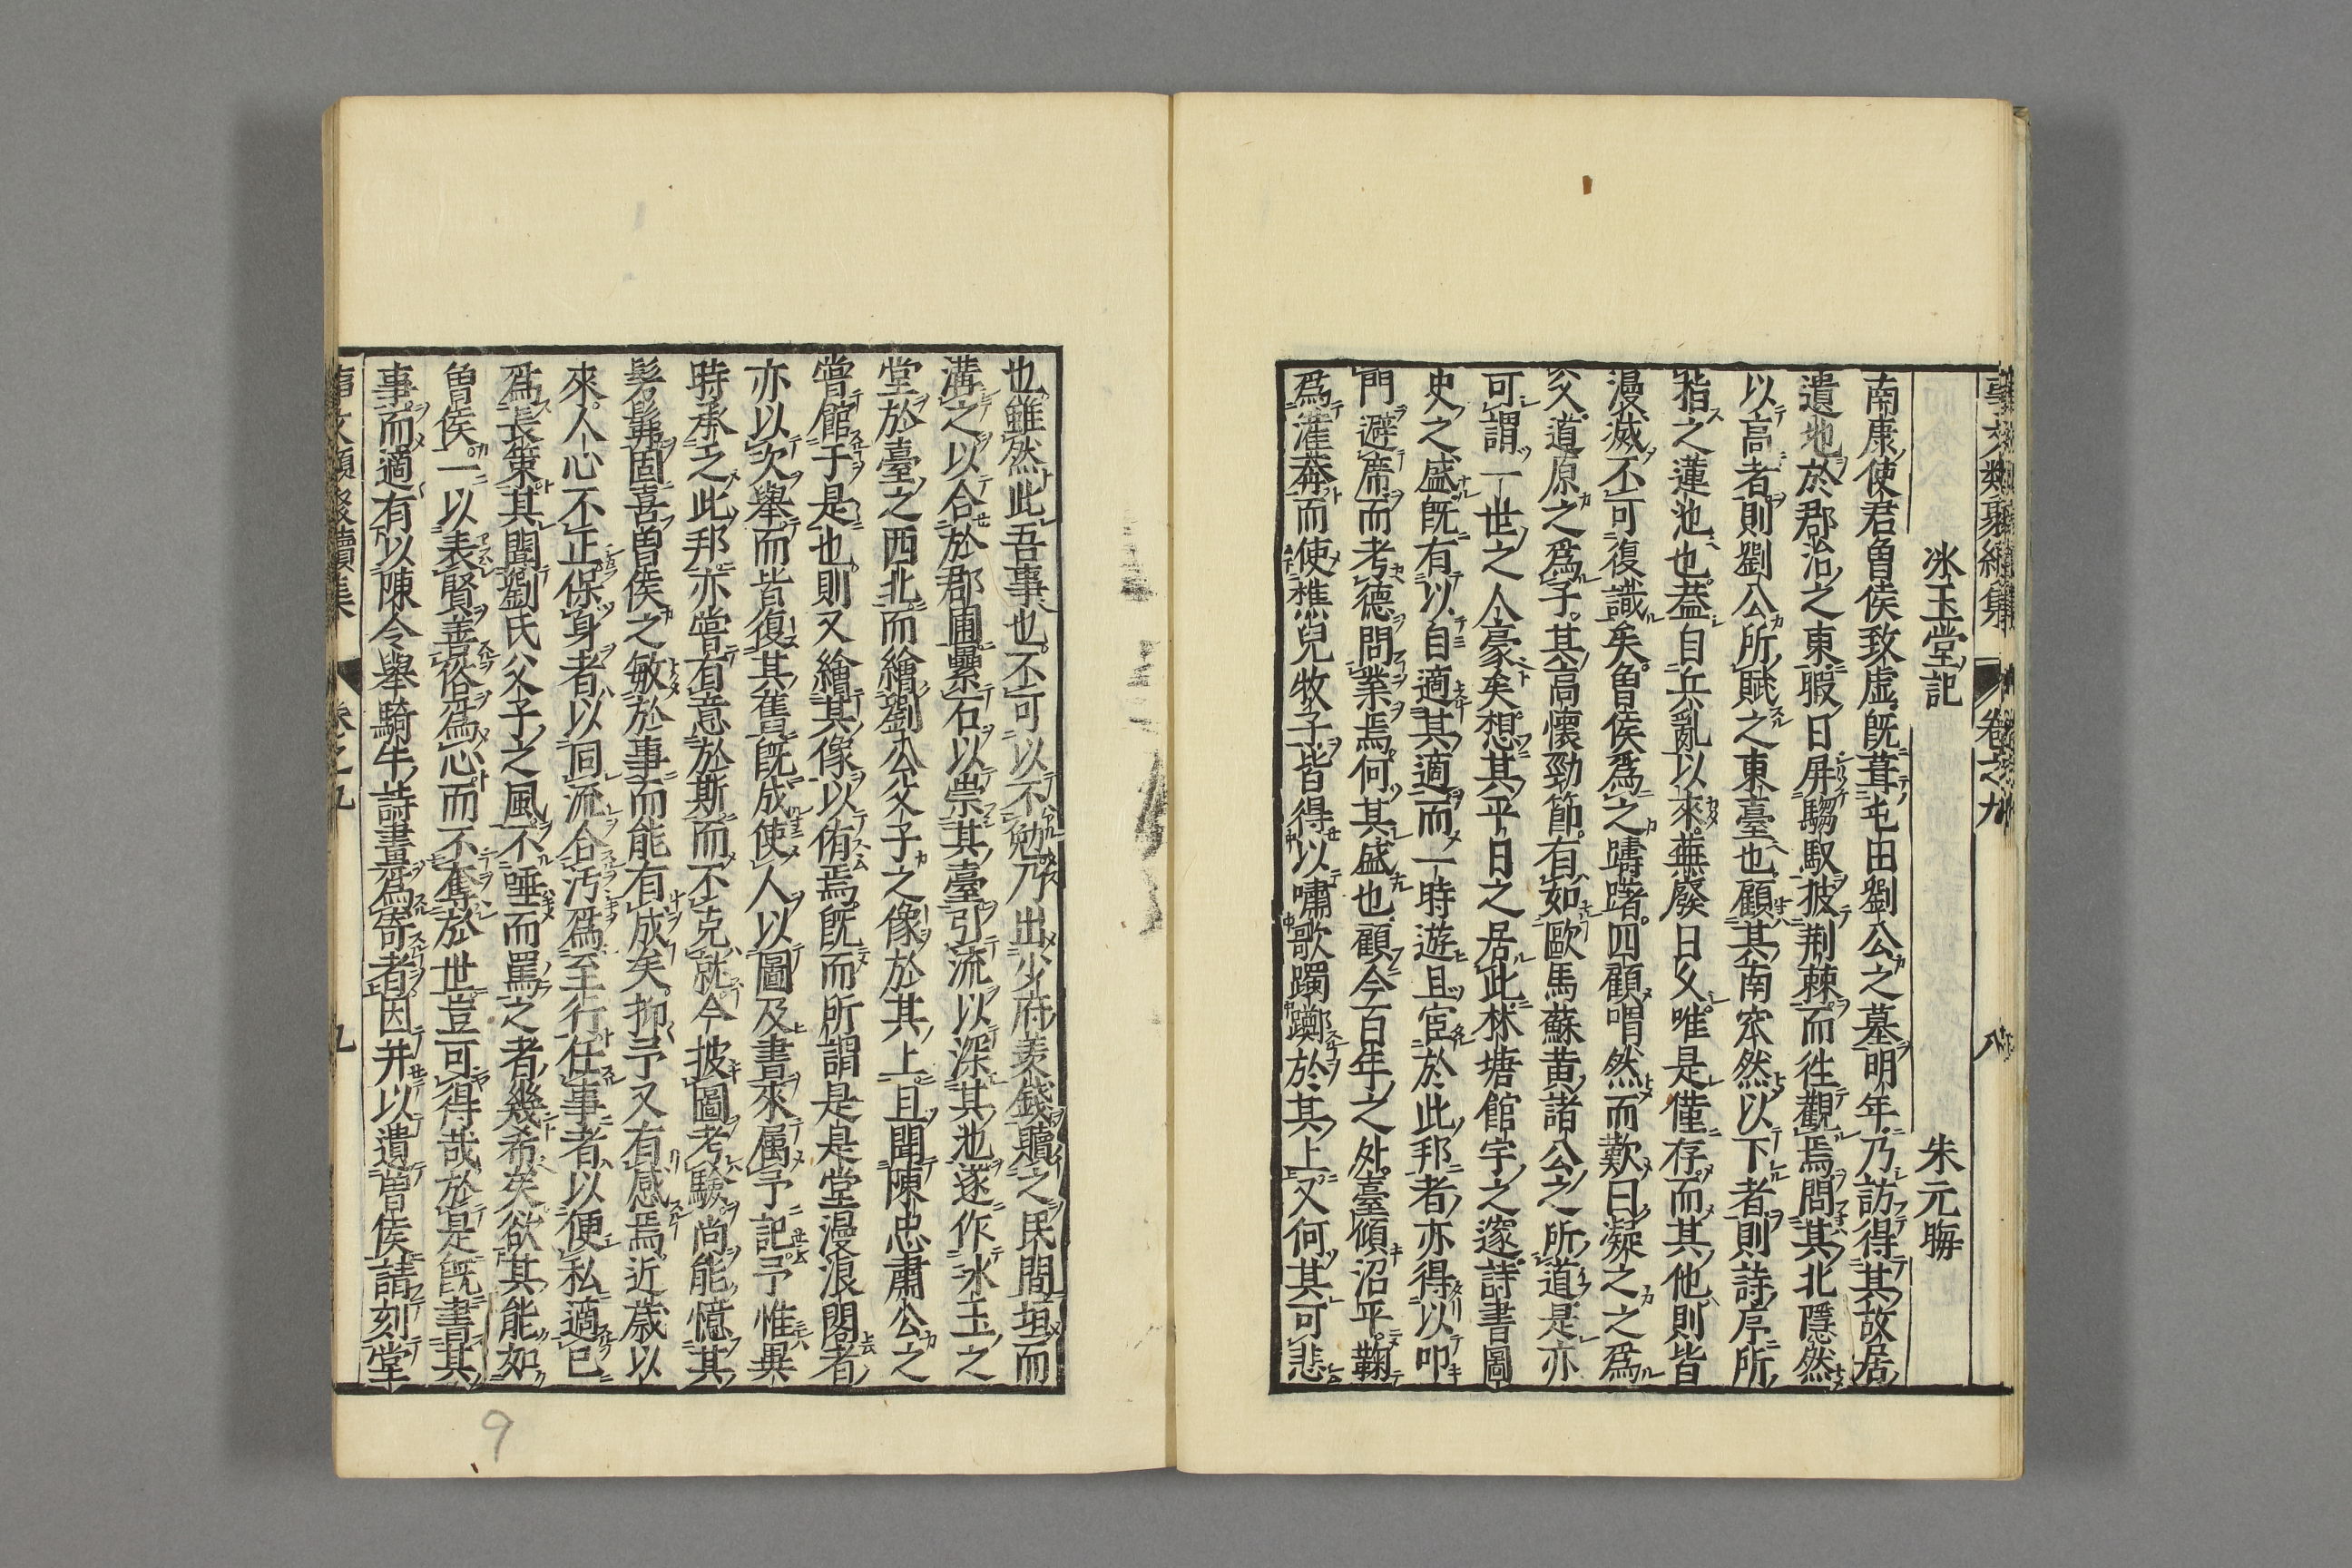 事文類聚續集 卷之九 八
冰玉堂記 朱元晦
南康使君曽侯致虚既葺屯田劉公之墓明年乃訪得其故居
遺地於郡治之東暇日屏騶馭披荆棘而徃觀焉問其北隱然
以高者則劉公所賦之東臺也顧其南窊然以下者則詩序所
指之蓮池也葢自兵亂以來蕪廢日乆唯是僅存而其他則皆
漫滅不可復識矣曽侯爲之躊躇四顧喟然而歎曰凝之之爲
父道原之爲子其高懷勁節有如歐馬蘇黄諸公之所道是亦
可謂一世之人豪矣想其平日之居此林塘館宇之邃詩書圖
史之盛既有以自適其適而一時遊且宦於此邦者亦得以叩
門避席而考德問業焉何其盛也顧今百年之外臺傾沼平鞠
爲灌莽而使樵兒牧子皆得以嘯歌躅躑於其上又何其可悲
也雖然此吾事也不可以不勉乃出少府羡錢贖之民間垣而
溝之以合於郡圃纍石以崇其臺引流以深其池遂作冰玉之
堂於臺之西北而繪劉公父子之像於其上且聞陳忠肅公之
嘗館于是也則又繪其像以侑焉既而所謂是是堂漫浪閣者
亦以次舉而皆復其舊既成使人以圖及書來屬予記予惟異
時承乏此邦亦嘗有意於斯而不克就今披圖考驗尚能憶其
髣髴固喜曽侯之敏於事而能有成矣抑予又有感焉近歲以
來人心不正保身者以同流合汚爲至行任事者以便私適已
爲長策其聞劉氏父子之風不唾而罵之者幾希矣欲其能如
曽侯一以表賢善俗爲心而不奪於世豈可得哉於是既書其
事而適有以陳令舉騎牛詩畫爲寄者因并以遺曽侯請刻堂
事文類聚續集 卷之九 九
9